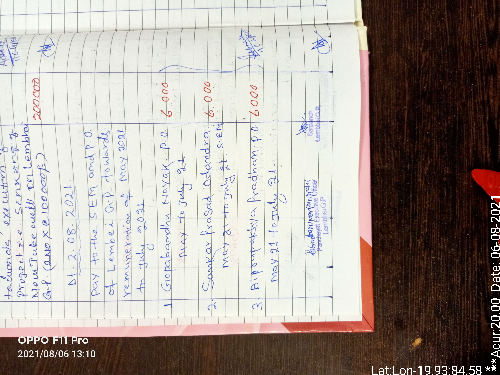 towards execution of
project i.e. sinking of
New Tube well in Lembha
G.P. (2 NO X @ 100000/-) 200000
Dt. 2.08.2021
Pay to the SEM and P.O
of Lembha G.P. towards
remuneration of May 2021
to July 2021
1. Gopabandhu Nayak P.O 6000
may to July 21
2. Sankar Prasad 6,000
may 21 to July 21 SEM
3. Pradhan P.O 6000
May 21 to July 21.
OPPO F11 Pro
2021/08/06 13:10
Lat:Lon-19.93:84.58 **Acur:20.00 Date: 06-08-2021